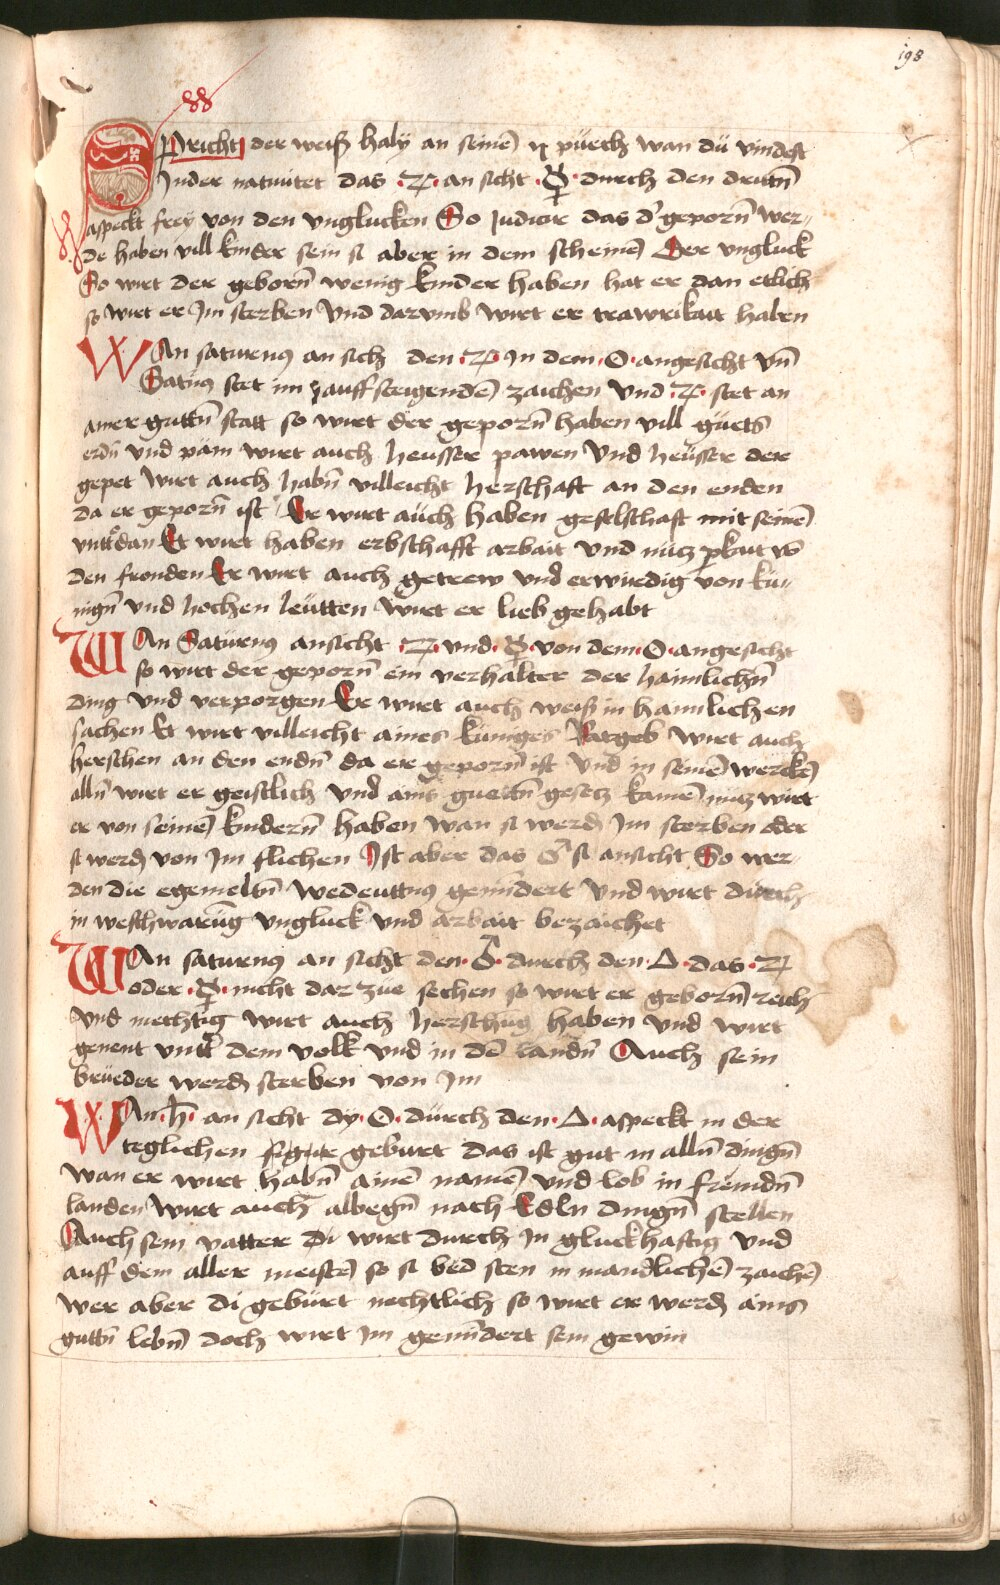 198
SPricht der weiß haly an seinē ix püech wan dü vindest
Inder natiuitet das ·♃· an sicht ·☿· durch den drittn̄
aspeckt frey von den vnglucken So Judicir das d' geporn̄ wer-
de haben vill kinder sein si aber in dem scheinē Der vngluck
So wirt der geborn̄ wenig kinder haben hat er dan etlich
so wirt er Im sterben Vnd darumb wirt er trawrikait haben
WAn saturnus an sich den ·♃· In dem ·☍· angesicht vn̄
Satur̄s stet im auffsteigendē zaichen Vnd ·♃· stet an
ainer guttn̄ statt so wirt der geporn̄ haben vill güets
erdn̄ vnd päm wirt auch heusser pawen Vnd heüsser der
gepet Wirt auch habn̄ villeicht herschaft an den enden
da er geporn̄ ist Er wirt aüch haben geselschaft mit seinē
vntt'dan Er wirt haben erbschafft arbait Vnd nücz
den fronden Er wirt auch getrew vnd erwirdig von kü-
nign̄ vnd hochen leütten wirt er lieb gehabt
WAn Satürnus ansicht ·♃· vnd ·☿· von dem ·☍· angesicht
so wirt der geporn̄ ein verhalter der haimlichn̄
ding vnd verporgen Er wirt auch weiß in haimlichen
sachen Er wirt villeicht aines küniges Ratgeb wirt auch
herschen an den endn̄ da er geporn̄ ist Vnd in seinē werckē
alln̄ wirt er geistlich Vnd ains guettn̄ gesecz kainē nücz wirt
er von seinē kindern̄ haben wan si werdn̄ Im sterben oder
si werdn̄ von Im flichen Ist aber das ♂ si ansicht So wer-
den die egemeltn̄ wedeuttn̄us gemindert Vnd wirt durch
in weschwarūg vngluck vnd arbait bezaichet
WAn saturnus an sicht den ·♂· durch den ·△· das ·♃
oder ·☿· nicht dar züe sechen so wirt er geborn̄ reich
Vnd mechtig wirt auch herschūg haben vnd wirt
genent vntt' dem volk vnd in dē landn̄ Auch sein
brüeder werdn̄ sterben von Im
WAn ·♄· an sicht dy ·☉· dürch den ·△· aspeckt in der
teglichen figur geburt das ist gut in alln̄ dingn̄
wan er wirt habn̄ ainē namē vnd lob in fremdn̄
landen Wirt auch albegn̄ nach Edln dingn̄ stellen
Auch sein vatter Di wirt durch In gluckhaftig vnd
auff dem aller meistē so si bed sten in mandlichē zaichē
wer aber di gebürt nechtlich so wirt er werdn̄ ains
guttn̄ lebn̄ doch wirt Im gemīdert sein gewin